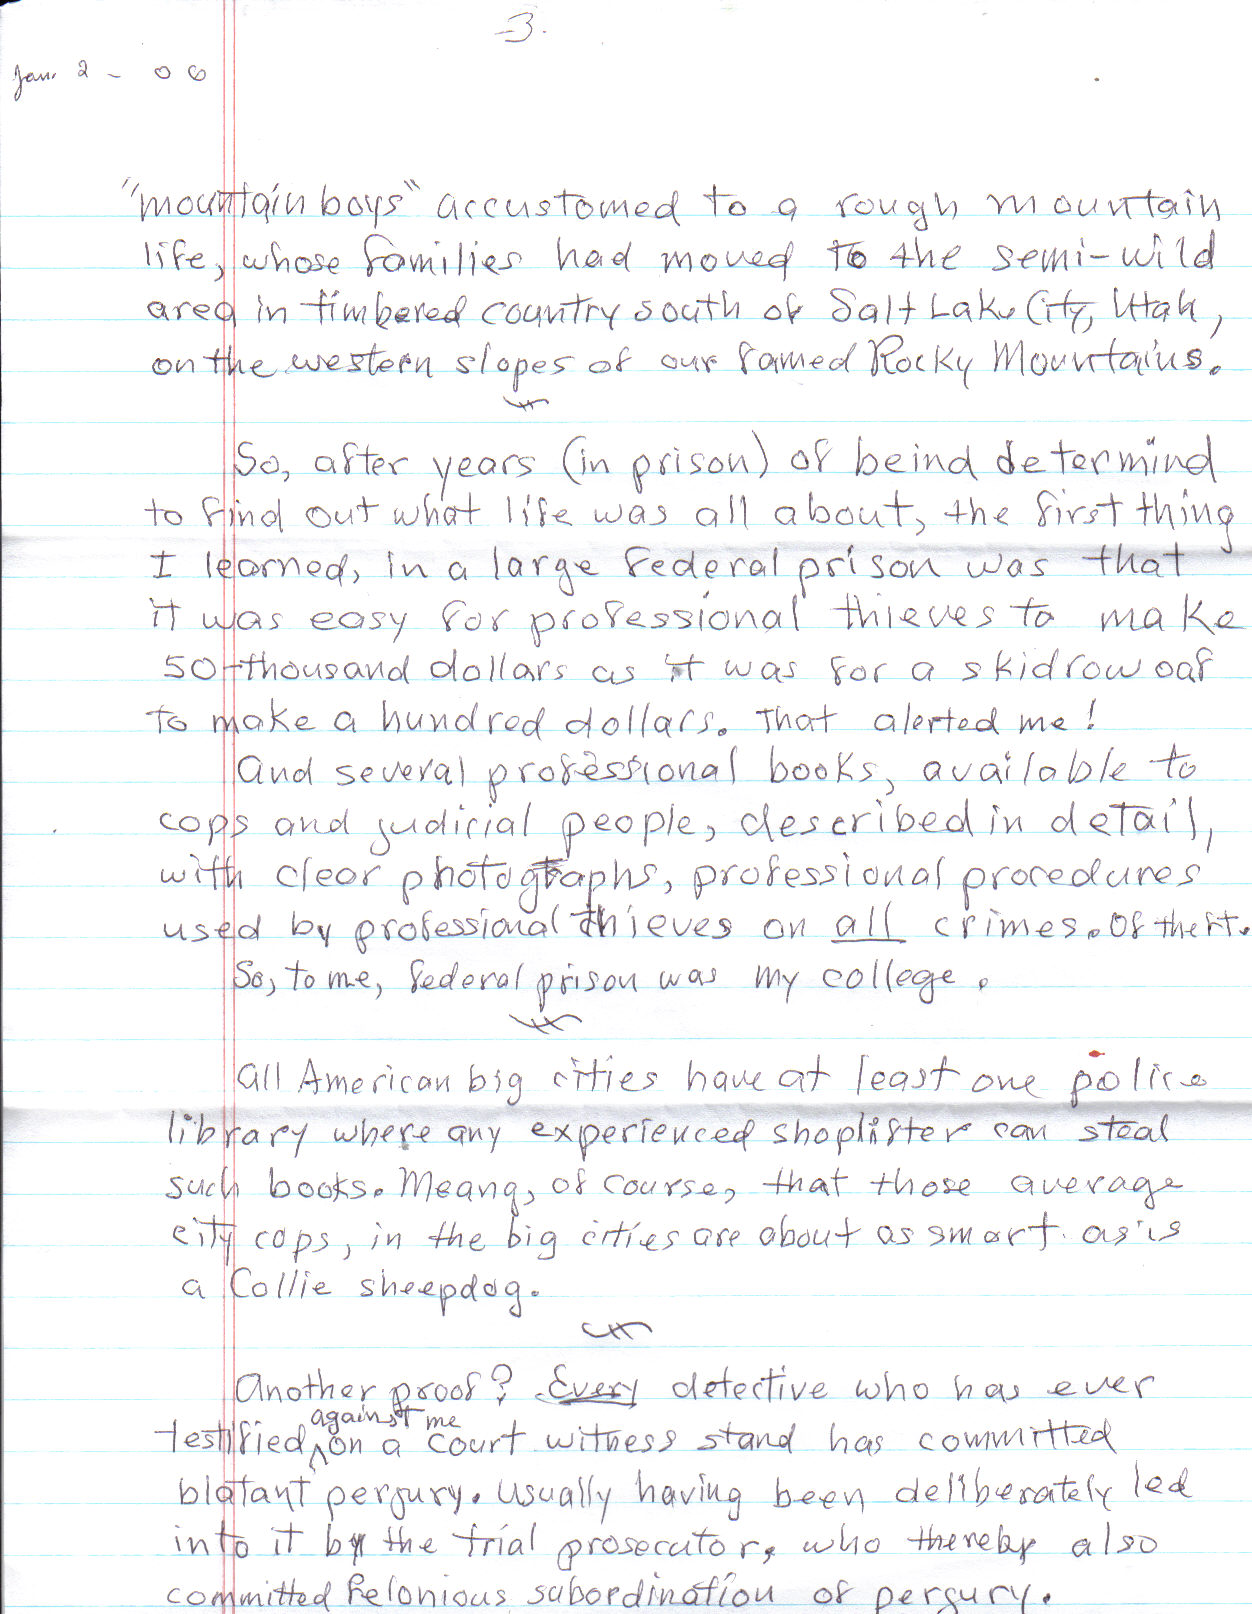 -3.
Jan. 2 - 06
"mountain boys" accustomed to a rough mountain
life, whose families had moved to the semi-wild
area in timbered country south of Salt Lake City, Utah,
on the western slopes of our famed Rocky Mountains.
So, after years (in prison) of beind determind
to find out what life was all about, the first thing
I learned, in a large federal prison was that
it was easy for professional thieves to make
50-thousand dollars as it was for a skidrow oaf
to make a hundred dollars. That alerted me!
And several professional books, available to
cops and judicial people, described in detail,
with clear photographs, professional procedures
used by professional thieves on all crimes. Of theft.
So, to me, federal prison was my college.
All American big cities have at least one police
library where any experienced shoplifter can steal
such books. Meang, of course, that those average
city cops, in the big cities are about as smart as is
a Collie sheepdog.
Another proof? Every detective who has ever
against me
testified, on a court witness stand has committed
blatant perjury. Usually having been deliberately led
into it by the trial prosecutor, who thereby also
committed felonious subordination of perjury.